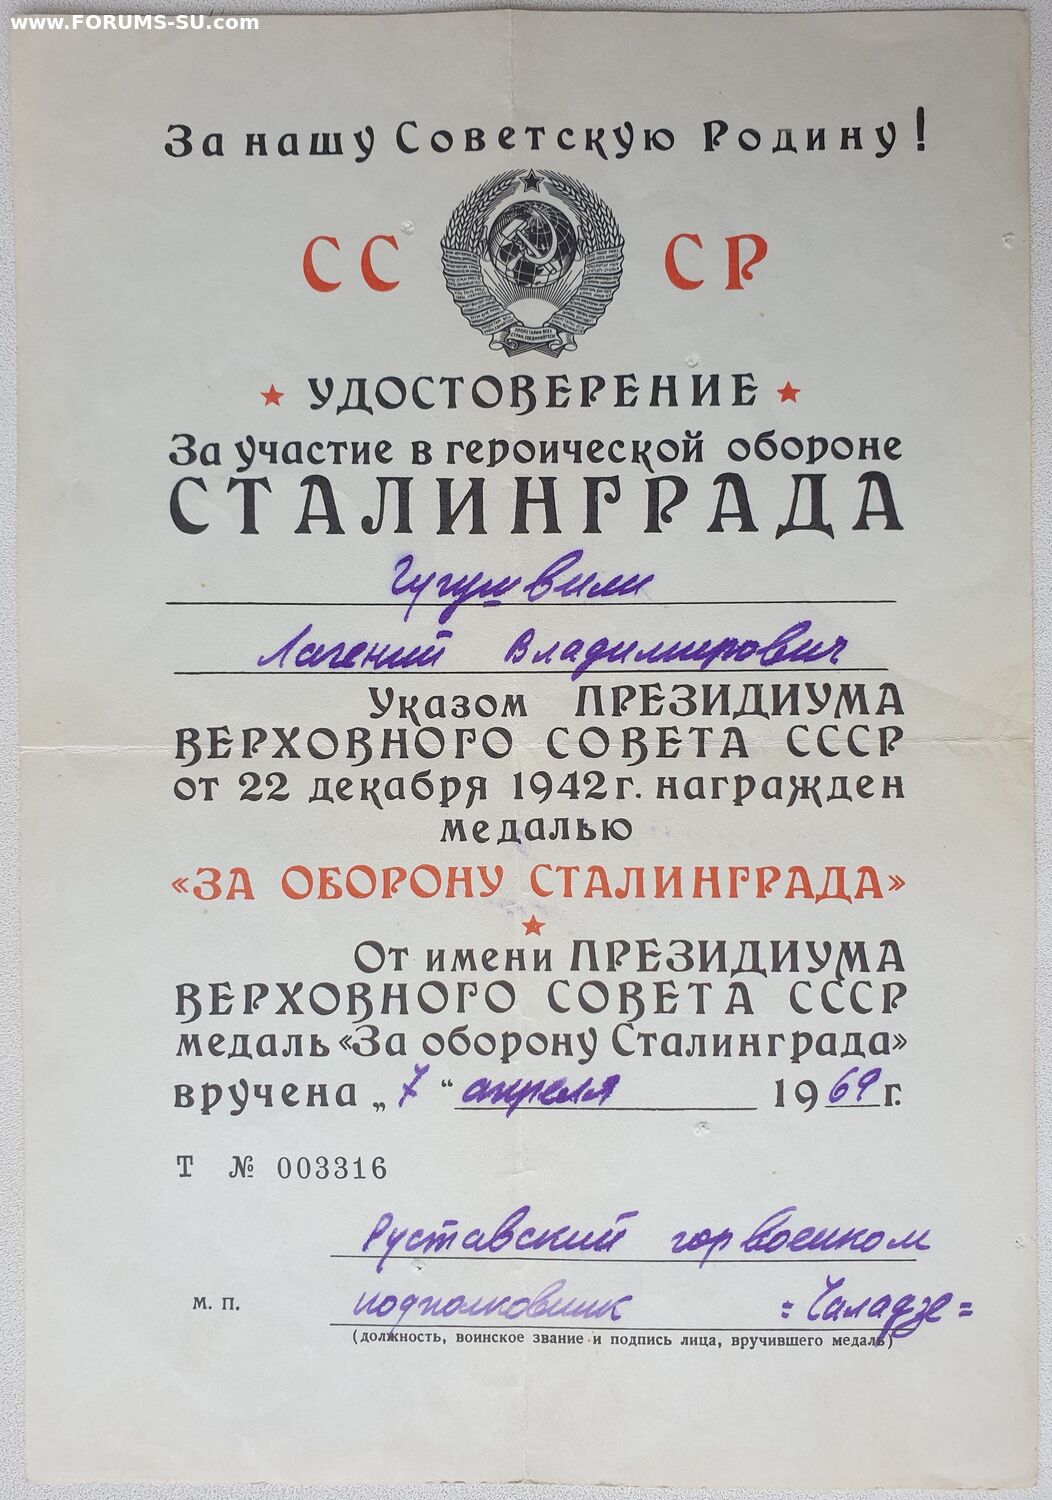 www.FORUMS-SU.com
За нашу Советскую Родину!
СС СР
ПРОЛЕТАРИИ ВСЕХ СТРАН, СОЕДИНЯЙТЕСЬ!
УДОСТОВЕРЕНИЕ
За участие в героической обороне
СТАЛИНГРАДА
Гугушвили
Владимирович
Указом ПРЕЗИДИУМА
ВЕРХОВНОГО СОВЕТА СССР
от 22 декабря 1942 г. награжден
медалью
«ЗА ОБОРОНУ СТАЛИНГРАДА»
От имени ПРЕЗИДИУМА
ВЕРХОВНОГО СОВЕТА СССР
медаль «За оборону Сталинграда»
вручена „7“ апреля 1969 г.
Т № 003316
Руставский горвоенком
М. П. подполковник =Чаладзе=
(должность, воинское звание и подпись лица, вручившего медаль)